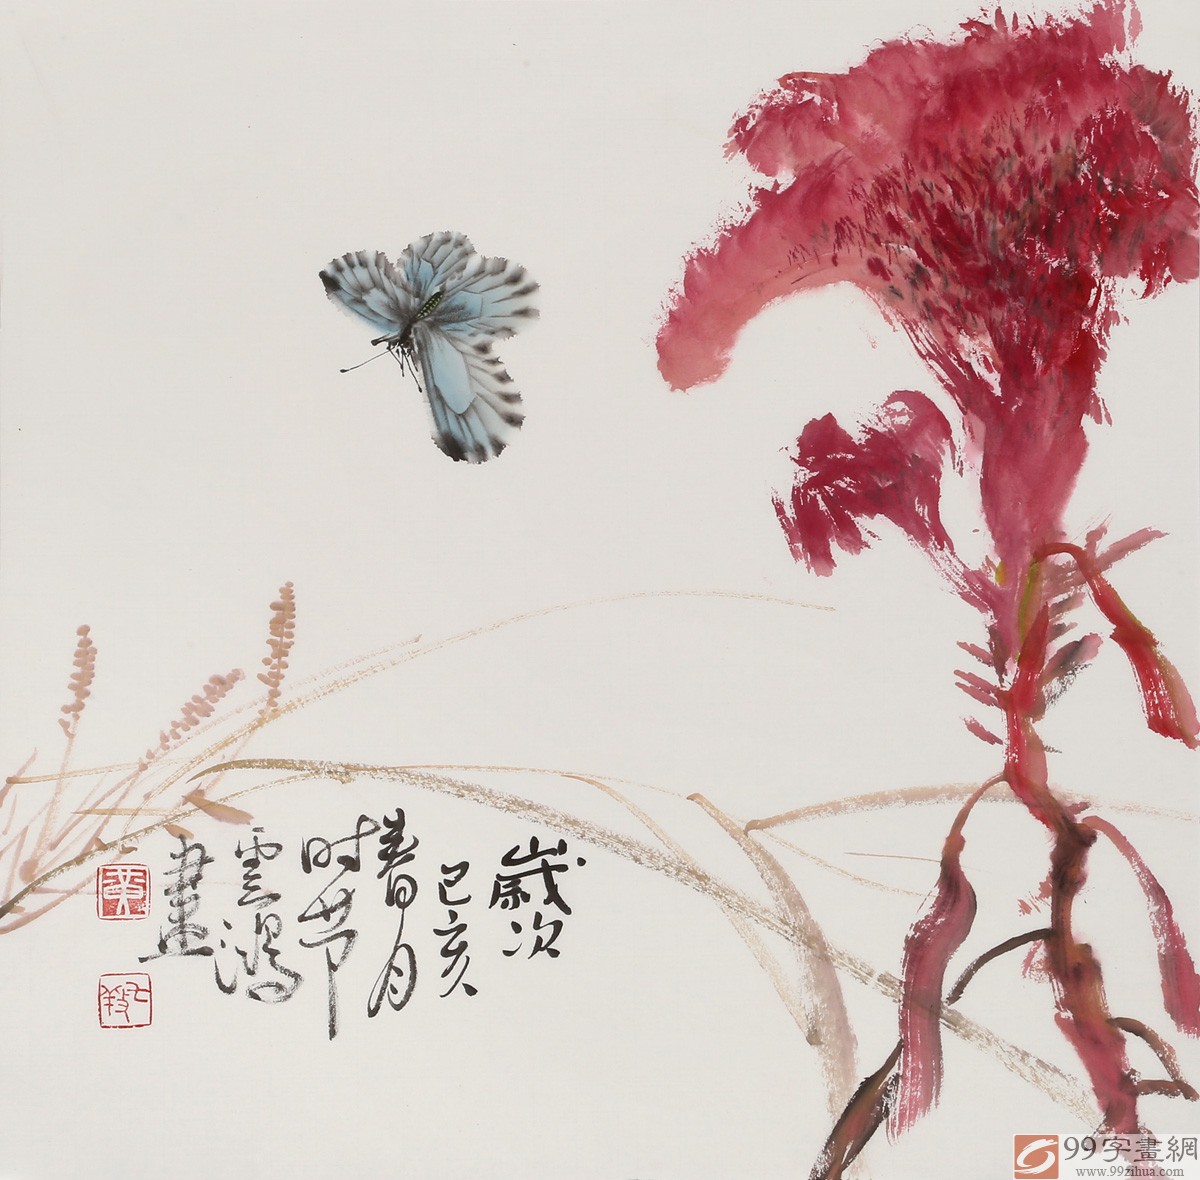 歲次
己亥
春月
时节
雲鴻
畫
黄
99字畫網
www.99zihua.com